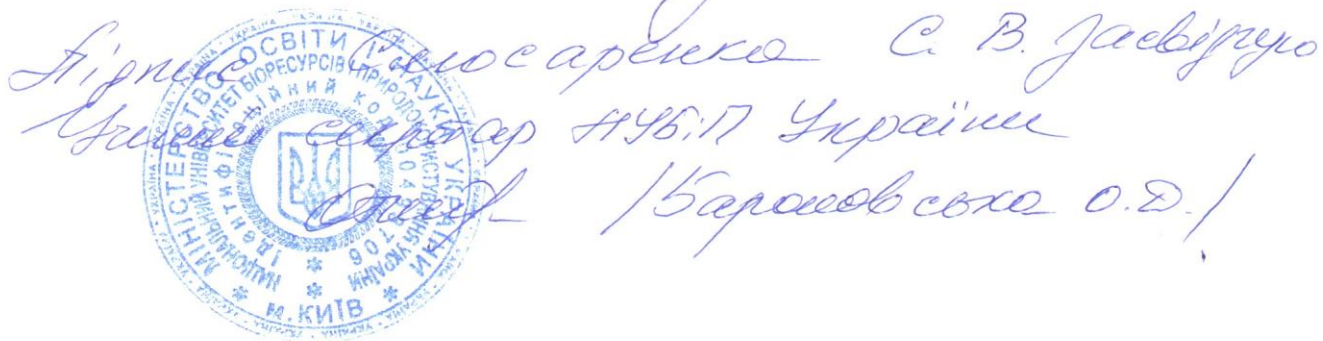 Підпис Слюсаренка С. В. засвідчую
Учений секретар НУБіП України
/Барановська О.Д./
МІНІСТЕРСТВО ОСВІТИ І НАУКИ УКРАЇНИ
* м.КИЇВ *
НАЦІОНАЛЬНИЙ УНІВЕРСИТЕТ БІОРЕСУРСІВ І ПРИРОДОКОРИСТУВАННЯ УКРАЇНИ
Ідентифікаційний код